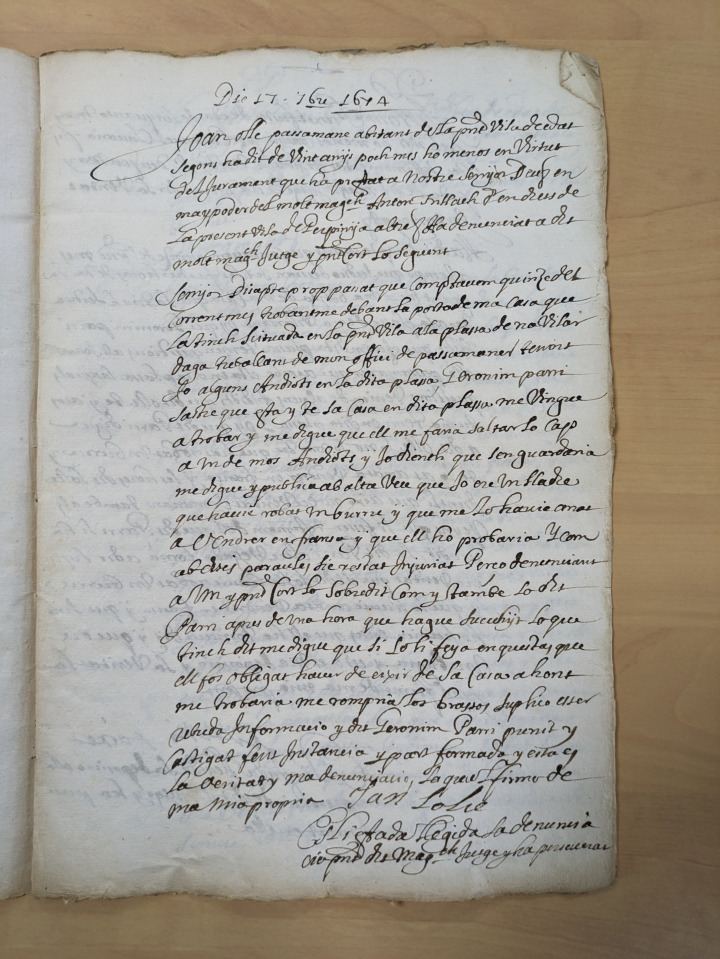 Die 17 - 7bre 1674
Joan olle passamane abitant de la pnt Vila de edat
segons ha dit de vint anys poch mes ho menos en virtut
del jurament que ha prestat a Nostre senyor Deu en
ma y poder del molt magch Anton dret de
la present vila de Perpinya altre ha denunciat a dit
molt magch Jutge y pnt Cort lo seguent
Senyor Diapte prop passat que Comptavem quinze del
Corrent mes trobantme debant la porta de ma Casa que
la tinch situada en la pnt vila a la plassa de na Vilar
daga treballant de mon offici de passamaner tenint
Jo alguns Andiots en la dita plassa Geronim parri
sastre que esta y te la Casa en dita plassa me vingue
a trobar y me digue que ell me faria saltar lo Cap
a un de mos Andiots y Jo dienli que sen guardaria
me digue y publica ab alta veu que Jo ere un lladre
que havie robat un burru y que me lo havie anat
a Vendrer en fransa y que ell ho probaria Y com
ab estes paraules he restat Injuriat Perco denunciant
a Vm y pnt Cort lo sobredit Com y tambe lo dit
Parri apres de una hora que hague succehit lo que
tinch dit me digue que si Jo li feya enquestas que
ell fos obligat haver de exir de sa Casa a hont
me trobaria me rompria los brassos suplico esser
rebuda Informacio y dit Geronim Parri punit y
Castigat fent Instancia y part formada y esta es
la veritat y ma denunciatio, la que firmo de
ma mia propria Jan Lolie
Dictada llegida la denuncia
cio pnt dit Magch Jutge y ha perseverat